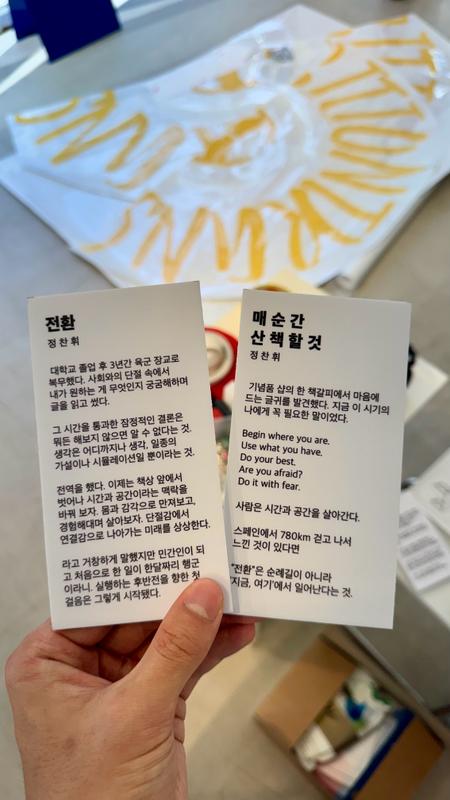 전환
정찬휘
대학교 졸업 후 3년간 육군 장교로
복무했다. 사회와의 단절 속에서
내가 원하는 게 무엇인지 궁금해하며
글을 읽고 썼다.
그 시간을 통과한 잠정적인 결론은
뭐든 해보지 않으면 알 수 없다는 것.
생각은 어디까지나 생각, 일종의
가설이나 시뮬레이션일 뿐이라는 것.
전역을 했다. 이제는 책상 앞에서
벗어나 시간과 공간이라는 맥락을
바꿔 보자. 몸과 감각으로 만져보고,
경험해대며 살아보자. 단절감에서
연결감으로 나아가는 미래를 상상한다.
라고 거창하게 말했지만 민간인이 되
고 처음으로 한 일이 한달짜리 행군
이라니. 실행하는 후반전을 향한 첫
걸음은 그렇게 시작됐다.
매 순간
산책할 것
정찬휘
기념품 샵의 한 책갈피에서 마음에
드는 글귀를 발견했다. 지금 이 시기의
나에게 꼭 필요한 말이었다.
Begin where you are.
Use what you have.
Do your best.
Are you afraid?
Do it with fear.
사람은 시간과 공간을 살아간다.
스페인에서 780km 걷고 나서
느낀 것이 있다면
"전환"은 순례길이 아니라
'지금, 여기'에서 일어난다는 것.